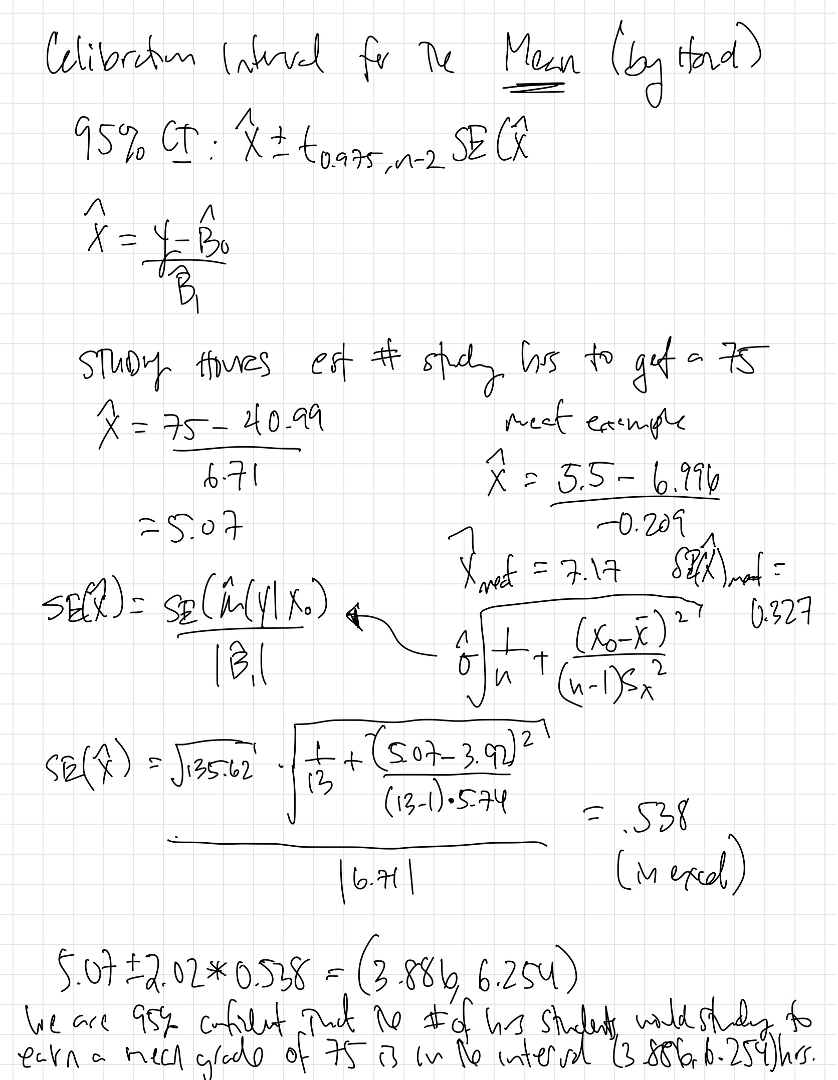 Calibration Interval for the Mean (by Hand)
95% CI: X̂ ± t0.975, n-2 SE(X̂
X̂ = (y - B̂0) / B̂1
STUDY HOURS est # study hrs to get a 75
X̂ = (75 - 40.99) / 6.71
= 5.07
meat example
X̂ = (5.5 - 6.996) / -0.209
X̂meat = 7.17 SE(X̂)meat = 0.327
SE(X̂) = SE(μ̂(y|X0)) / |B̂1|
σ̂ √(1/n + (X0 - x̄)² / (n-1)Sx²)
SE(X̂) = √135.62 · √(1/13 + (5.07 - 3.92)² / (13-1)·5.74) / |6.71| = .538
(in excel)
5.07 ± 2.02 * 0.538 = (3.886, 6.254)
We are 95% confident that the # of hrs students would study to
earn a mean grade of 75 is in the interval (3.886, 6.254) hrs.